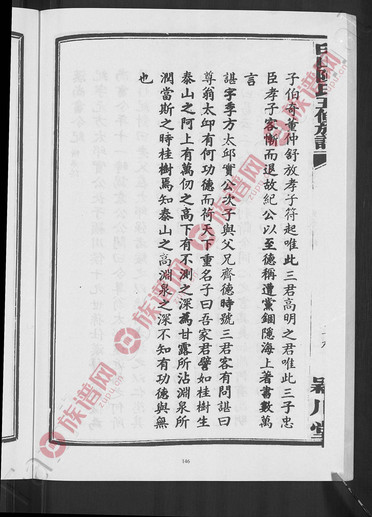 子伯奇董仲舒放孝子符起唯此三君高明之君唯此三子忠
臣孝子客慚而退故紀公以至德稱遭黨錮隱海上著書數萬
言
諶字季方太邱寔公次子與父兄齊德時號三君客有問諶曰
尊翁太邱有何功德而荷天下重名子曰吾家君譬如桂樹生
泰山之阿上有萬仞之高下有不測之深為甘露所沾淵泉所
潤當斯之時桂樹焉知泰山之高淵泉之深不知有功德與無
也
五修族譜
潁川堂
146
族谱网